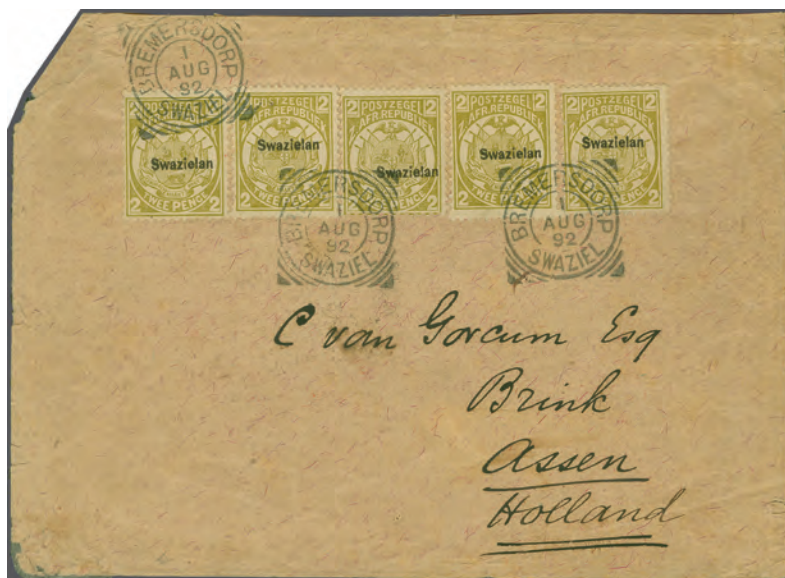 BREMERSDORP
1
AUG
92
SWAZIEL
2 POSTZEGEL 2
AFR. REPUBLIEK
Swazielan
2 TWEE PENCE 2
2 POSTZEGEL 2
AFR. REPUBLIEK
Swazielan
TWEE PENCE 2
2 POSTZEGEL 2
AFR. REPUBLIEK
Swazielan
PENCE 2
2 POSTZEGEL 2
AFR. REPUBLIEK
Swazielan
2 TWEE PENCE
2 POSTZEGEL 2
AFR. REPUBLIEK
Swazielan
TWEE PENCE 2
BREMERSDORP
1
AUG
92
SWAZIEL
BREMERSDORP
1
AUG
92
SWAZIEL
C van Gorcum Esq
Brink
Assen
Holland